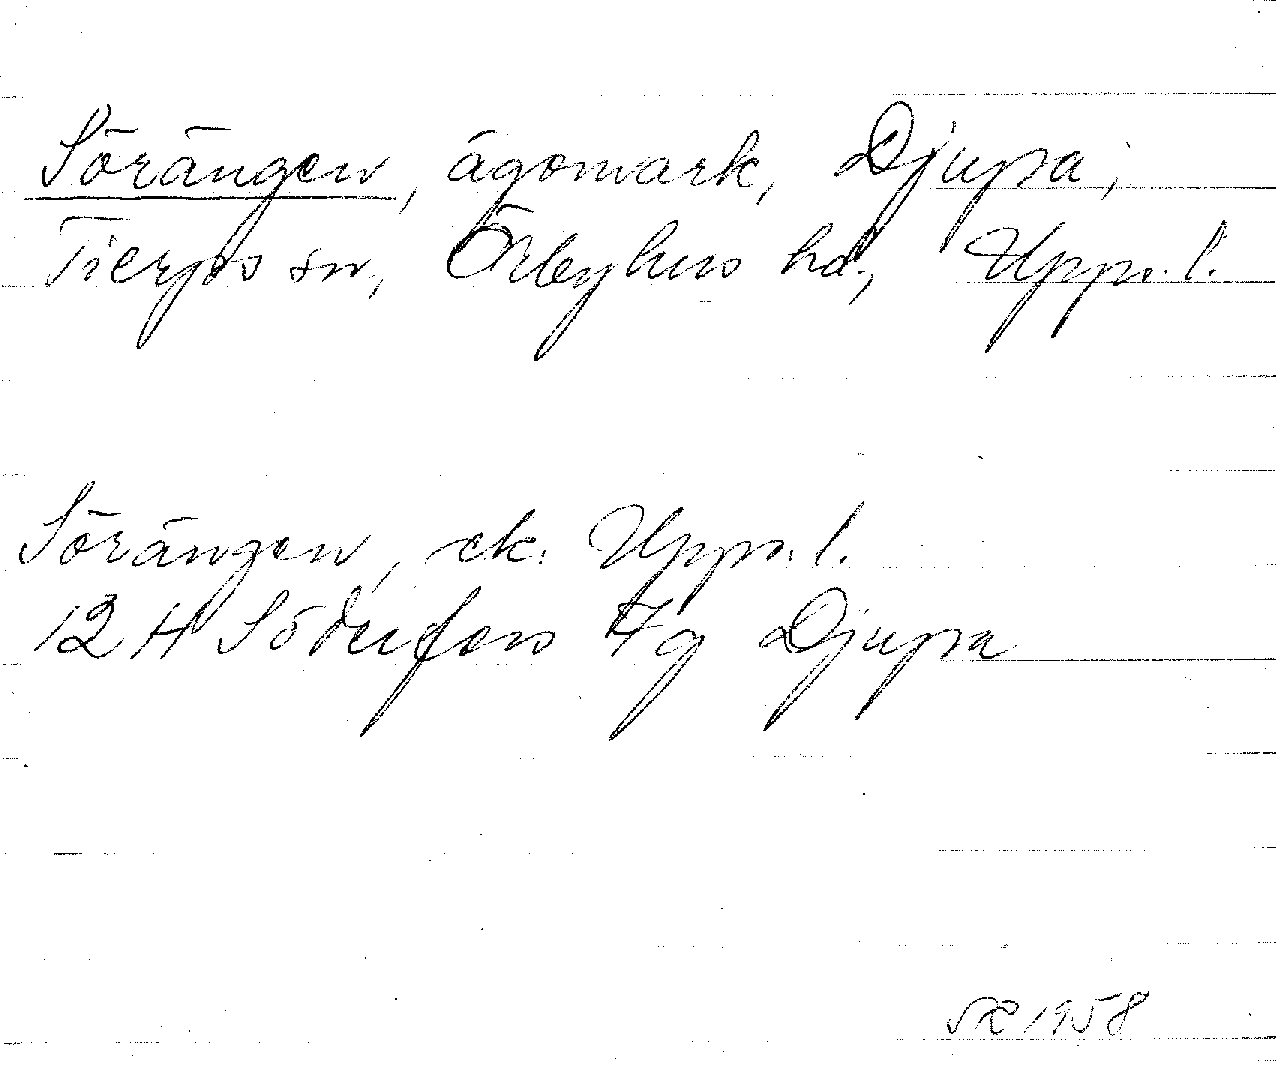 Sörängen, ägomark, Djupa,
Tierps sn, Örbyhus hd., Upps. l.
Sörängen, ek. Upps. l.
12 H Söderfors 7g Djupa
1958